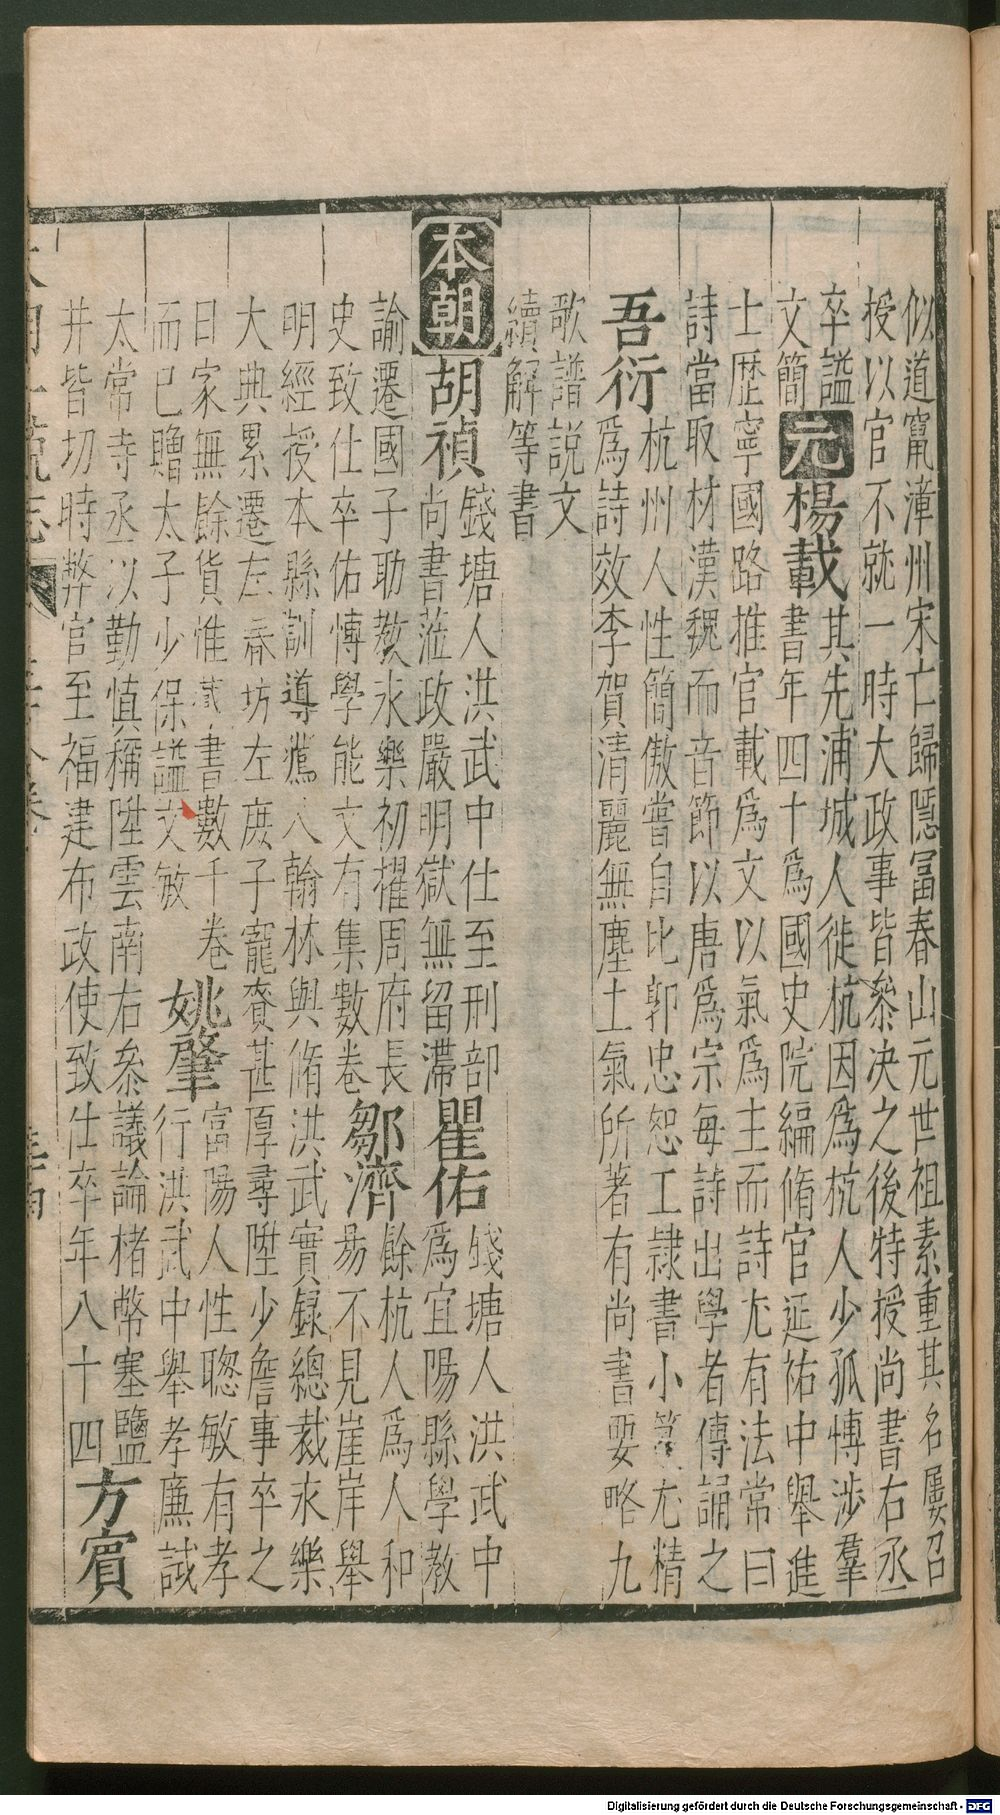 似道竄漳州宋亡歸隱冨春山元世祖素重其名屢召
授以官不就一時大政事皆叅决之後特授尚書右丞
卒謚
文簡
元
楊載
其先浦城人徙杭因爲杭人少孤愽涉羣
書年四十爲國史院編脩官延祐中舉進
士歷寧國路推官載爲文以氣爲主而詩尤有法常曰
詩當取材漢魏而音節以唐爲宗每詩出學者傳誦之
吾衍
杭州人性簡傲嘗自比郭忠恕工隷書小篆尤精
爲詩效李賀清麗無塵土氣所著有尚書要略九
歌譜說文
續解等書
本朝
胡禎
錢塘人洪武中仕至刑部
尚書蒞政嚴明獄無留滯
瞿佑
錢塘人洪武中
爲宜陽縣學教
諭遷國子助教永樂初擢周府長
史致仕卒佑愽學能文有集數卷
鄒濟
餘杭人爲人和
昜不見崖岸舉
明經授本縣訓導薦入翰林與脩洪武實録總裁永樂
大典累遷左春坊左庶子寵賚甚厚尋陞少詹事卒之
日家無餘貨惟藏書數千卷
而已贈太子少保謚文敏
姚肇
富陽人性聰敏有孝
行洪武中舉孝廉試
太常寺丞以勤慎稱陞雲南右叅議論楮幣塞鹽
井皆切時弊官至福建布政使致仕卒年八十四
方賔
Digitalisierung gefördert durch die Deutsche Forschungsgemeinschaft - DFG